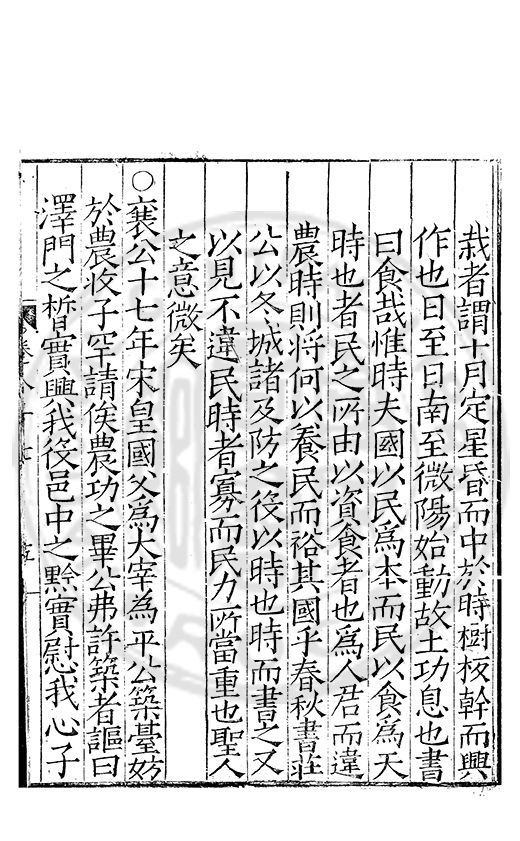 栽者謂十月定星昏而中於時樹板幹而興
作也日至日南至微陽始動故土功息也書
曰食哉惟時夫國以民為本而民以食為天
時也者民之所由以資食者也為人君而違
農時則將何以養民而裕其國乎春秋書莊
公以冬城諸及防之役以時也時而書之又
以見不違民時者寡而民力所當重也聖人
之意微矣
○襄公十七年宋皇國父為大宰為平公築臺妨
於農收子罕請俟農功之畢公弗許築者謳曰
澤門之晳實興我役邑中之黔實慰我心子